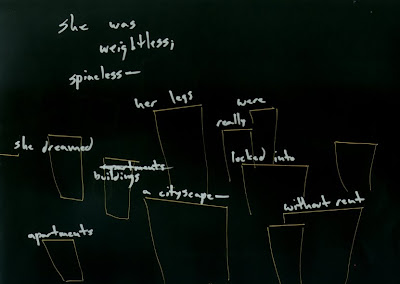 she was
weightless;
spineless—
her legs
were
really
she dreamed
locked into
apartments
buildings
a cityscape—
without rent
apartments